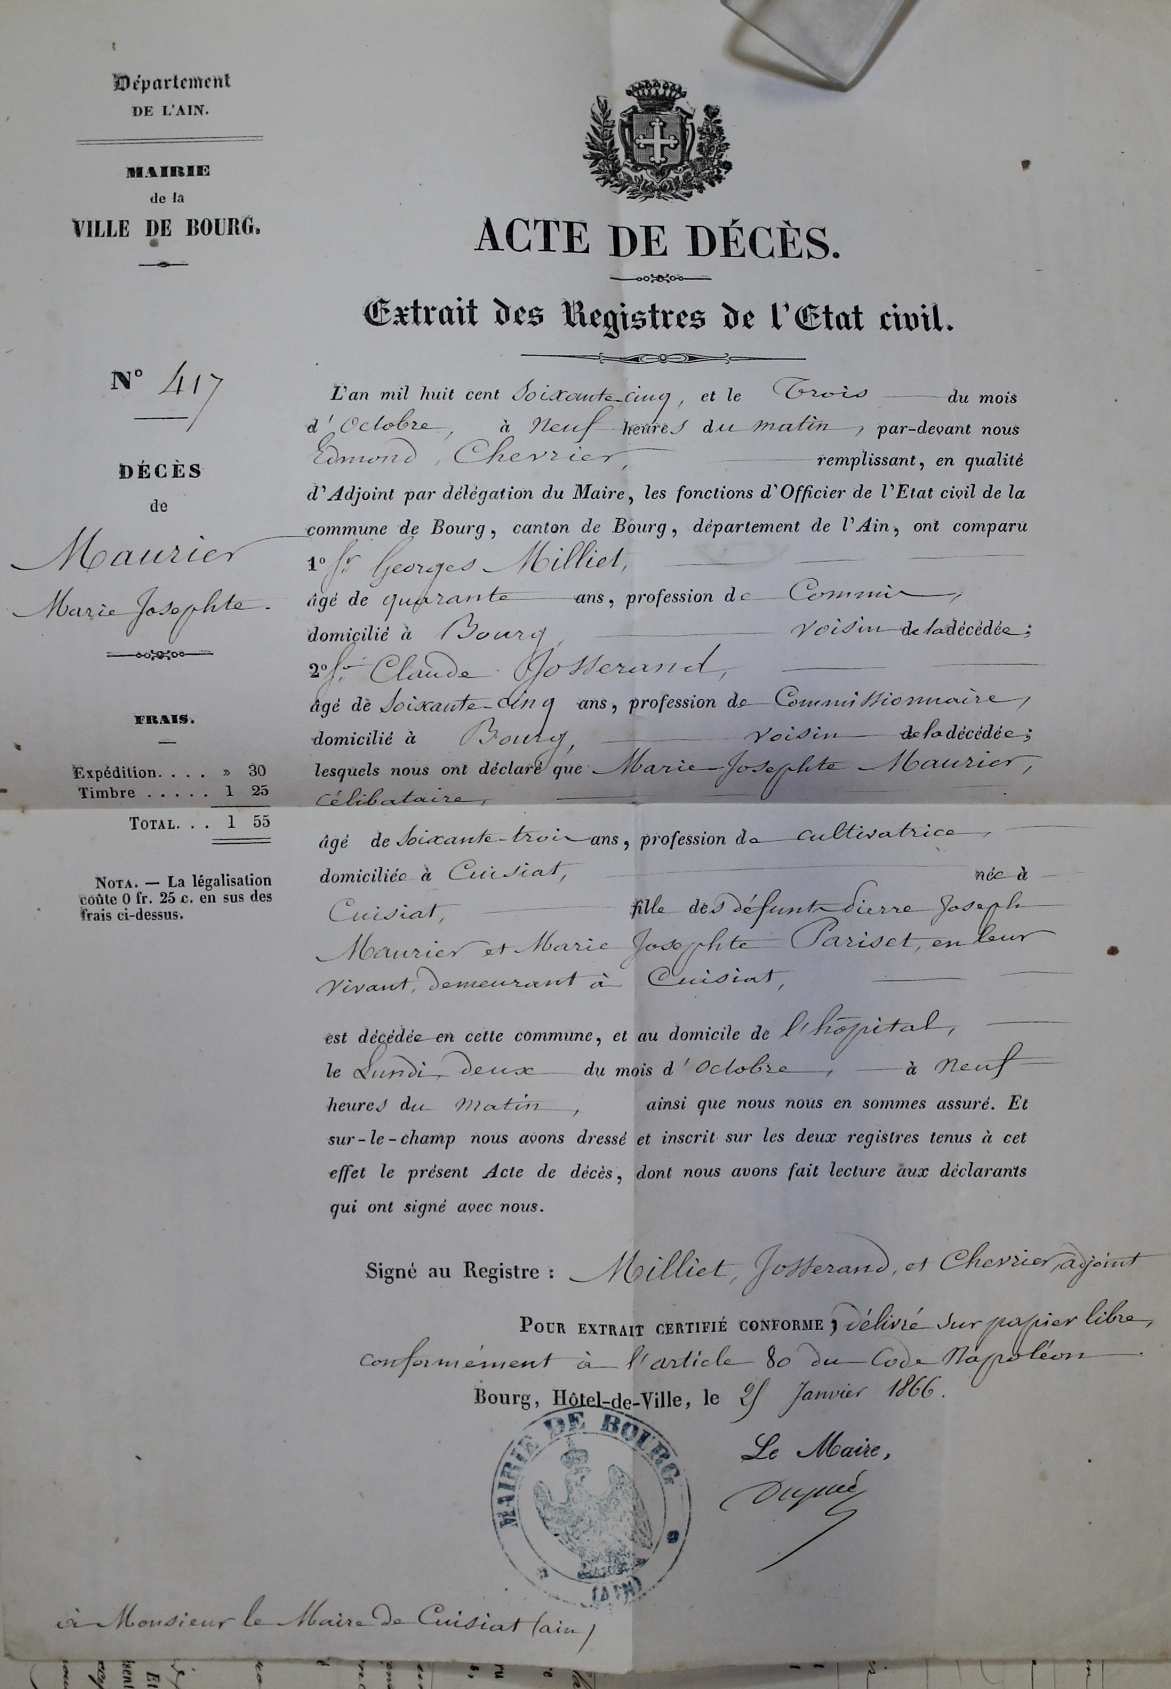 Département
DE L'AIN.
MAIRIE
de la
VILLE DE BOURG.
N° 417
DÉCÈS
de
Maurier
Marie Josephte.
FRAIS.
Expédition. . . . » 30
Timbre . . . . . 1 25
TOTAL. . . 1 55
NOTA. — La légalisation
coûte 0 fr. 25 c. en sus des
frais ci-dessus.
ACTE DE DÉCÈS.
Extrait des Registres de l'Etat civil.
L'an mil huit cent soixante-cinq, et le Trois du mois
d'Octobre, à Neuf heures du matin, par-devant nous
Edmond Chevrier, remplissant, en qualité
d'Adjoint par délégation du Maire, les fonctions d'Officier de l'Etat civil de la
commune de Bourg, canton de Bourg, département de l'Ain, ont comparu
1° Sr Georges Milliet,
âgé de quarante ans, profession de Commis,
domicilié à Bourg, voisin de la décédée;
2° Sr Claude Josserand,
âgé de soixante-cinq ans, profession de Commissionnaire,
domicilié à Bourg, voisin de la décédée;
lesquels nous ont déclaré que Marie-Josephte Maurier,
célibataire,
âgé de soixante-trois ans, profession de cultivatrice,
domiciliée à Cuisiat, née à
Cuisiat, fille des défunts Pierre Joseph
Maurier et Marie Josephte Pariset, en leur
vivant, demeurant à Cuisiat,
est décédée en cette commune, et au domicile de l'hôpital,
le Lundi, deux du mois d'Octobre, à Neuf
heures du matin, ainsi que nous nous en sommes assuré. Et
sur-le-champ nous avons dressé et inscrit sur les deux registres tenus à cet
effet le présent Acte de décès, dont nous avons fait lecture aux déclarants
qui ont signé avec nous.
Signé au Registre : Milliet, Josserand, et Chevrier, adjoint
POUR EXTRAIT CERTIFIÉ CONFORME, délivré sur papier libre,
conformément à l'article 80 du Code Napoléon.
Bourg, Hôtel-de-Ville, le Janvier 1866.
Le Maire,
MAIRIE DE BOURG
(AIN)
à Monsieur le Maire de Cuisiat (ain)